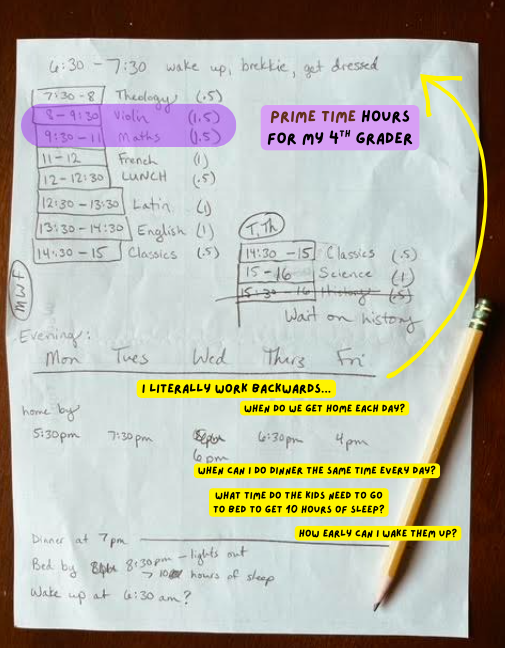 6:30 - 7:30 wake up, brekkie, get dressed
7:30 - 8 Theology (.5)
8 - 9:30 Violin (1.5)
9:30 - 11 Maths (1.5)
11 - 12 French (1)
12 - 12:30 LUNCH (.5)
12:30 - 13:30 Latin (1)
13:30 - 14:30 English (1)
14:30 - 15 Classics (.5)
MWF
PRIME TIME HOURS
FOR MY 4TH GRADER
T, Th
14:30 - 15 Classics (.5)
15 - 16 Science (1)
15:30 - 16 History (.5)
Wait on history
Evening:
Mon Tues Wed Thurs Fri
I LITERALLY WORK BACKWARDS...
WHEN DO WE GET HOME EACH DAY?
home by
5:30pm 7:30pm 6:30pm 4pm
6pm
WHEN CAN I DO DINNER THE SAME TIME EVERY DAY?
WHAT TIME DO THE KIDS NEED TO GO
TO BED TO GET 10 HOURS OF SLEEP?
HOW EARLY CAN I WAKE THEM UP?
Dinner at 7pm
Bed by 8:30pm - lights out
→ 10 hours of sleep
Wake up at 6:30 am?